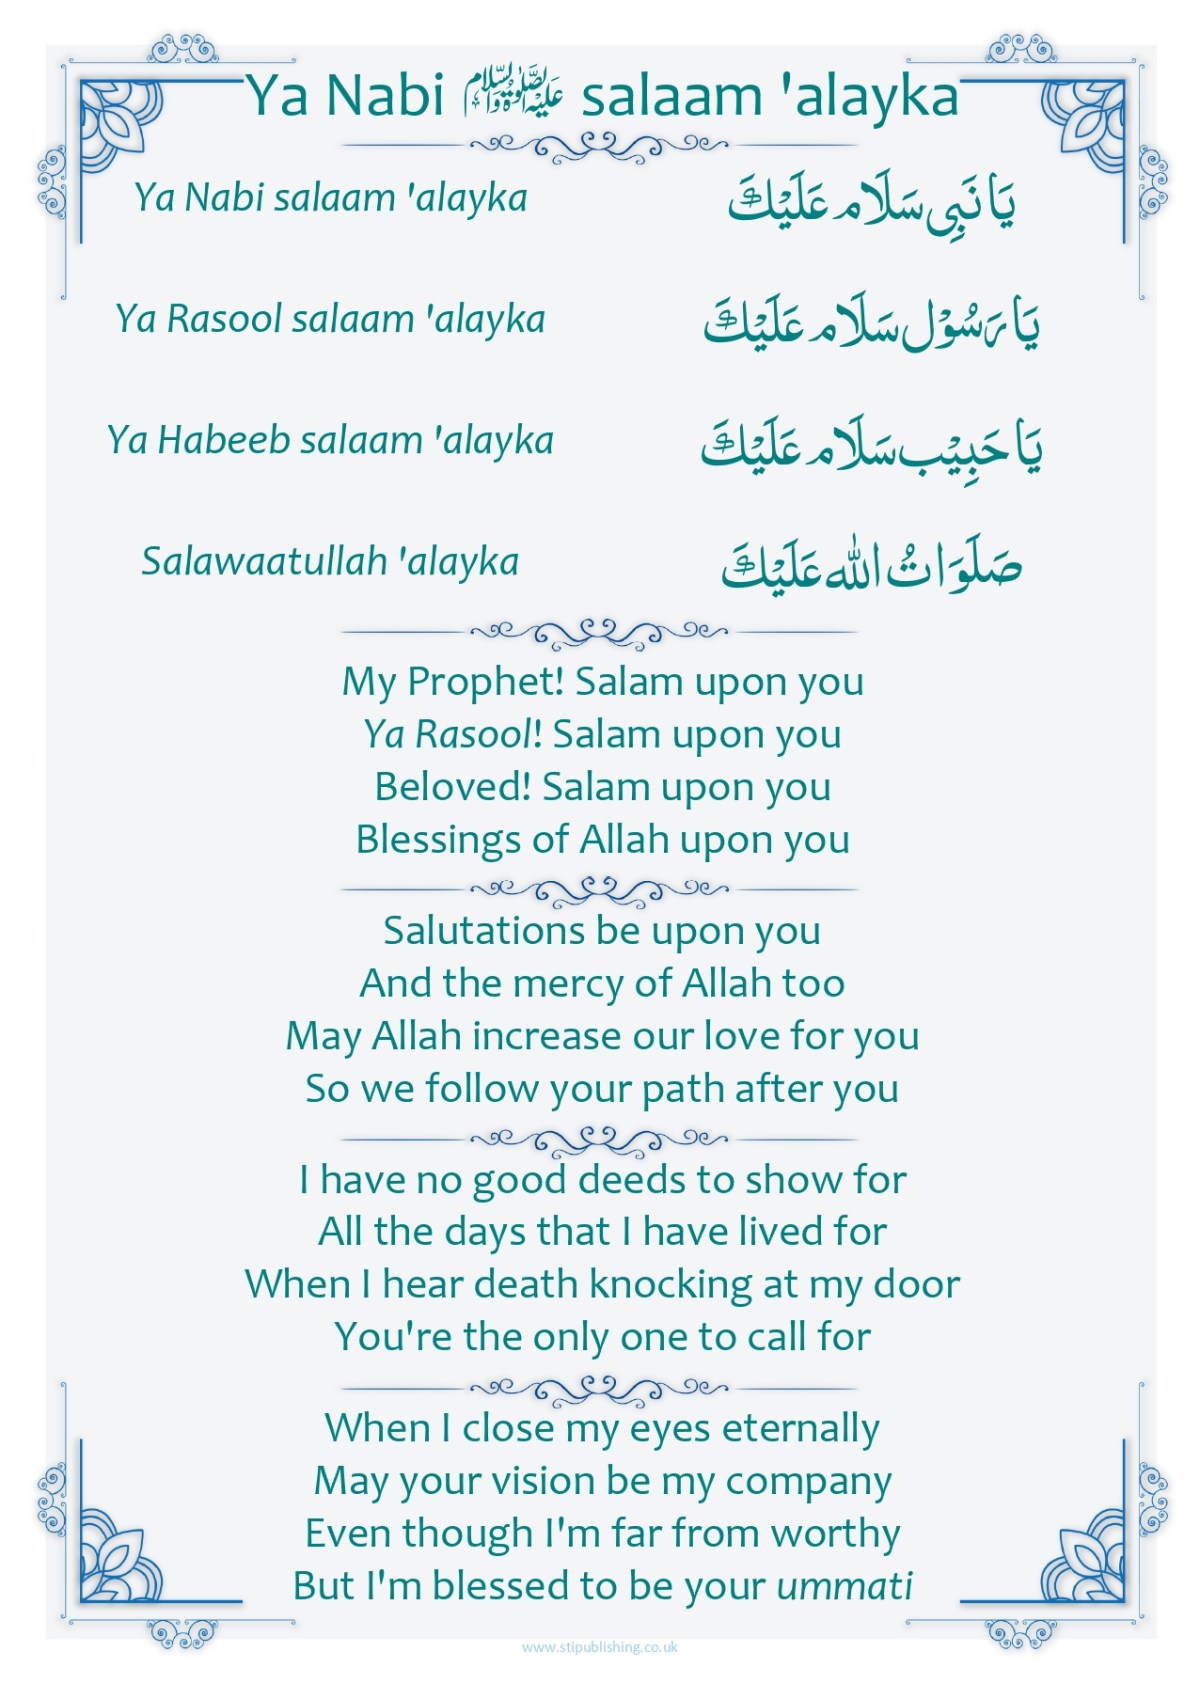 Ya Nabi عليه الصلوة والسلام salaam 'alayka
Ya Nabi salaam 'alayka
يَا نَبِى سَلَام عَلَيْكَ
Ya Rasool salaam 'alayka
يَا رَسُوْل سَلَام عَلَيْكَ
Ya Habeeb salaam 'alayka
يَا حَبِيْب سَلَام عَلَيْكَ
Salawaatullah 'alayka
صَلَوَاتُ الله عَلَيْكَ
My Prophet! Salam upon you
Ya Rasool! Salam upon you
Beloved! Salam upon you
Blessings of Allah upon you
Salutations be upon you
And the mercy of Allah too
May Allah increase our love for you
So we follow your path after you
I have no good deeds to show for
All the days that I have lived for
When I hear death knocking at my door
You're the only one to call for
When I close my eyes eternally
May your vision be my company
Even though I'm far from worthy
But I'm blessed to be your ummati
www.stipublishing.co.uk